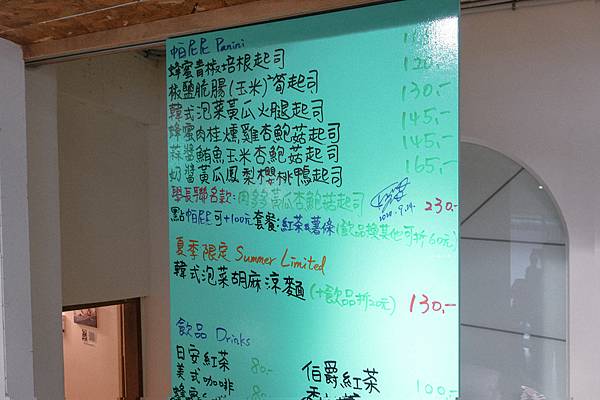 帕尼尼 Panini
蜂蜜青椒培根起司 120
椒鹽脆腸(玉米)筍起司 130.-
韓式泡菜黃瓜火腿起司 145.-
蜂蜜肉桂燻雞杏鮑菇起司 145.-
蒜醬鮪魚玉米杏鮑菇起司 165.-
切醬黃瓜鳳梨櫻桃鴨起司
學長聯名款:肉鬆黃瓜杏鮑菇起司 2020.9.24. 230.-
點帕尼尼可+100元套餐:紅茶&薯條(飲品換其他可折60元)
夏季限定 Summer Limited
韓式泡菜胡麻涼麵(+飲品折20元) 130.-
飲品 Drinks
日安紅茶 80.-
美式咖啡
伯爵紅茶 100.-